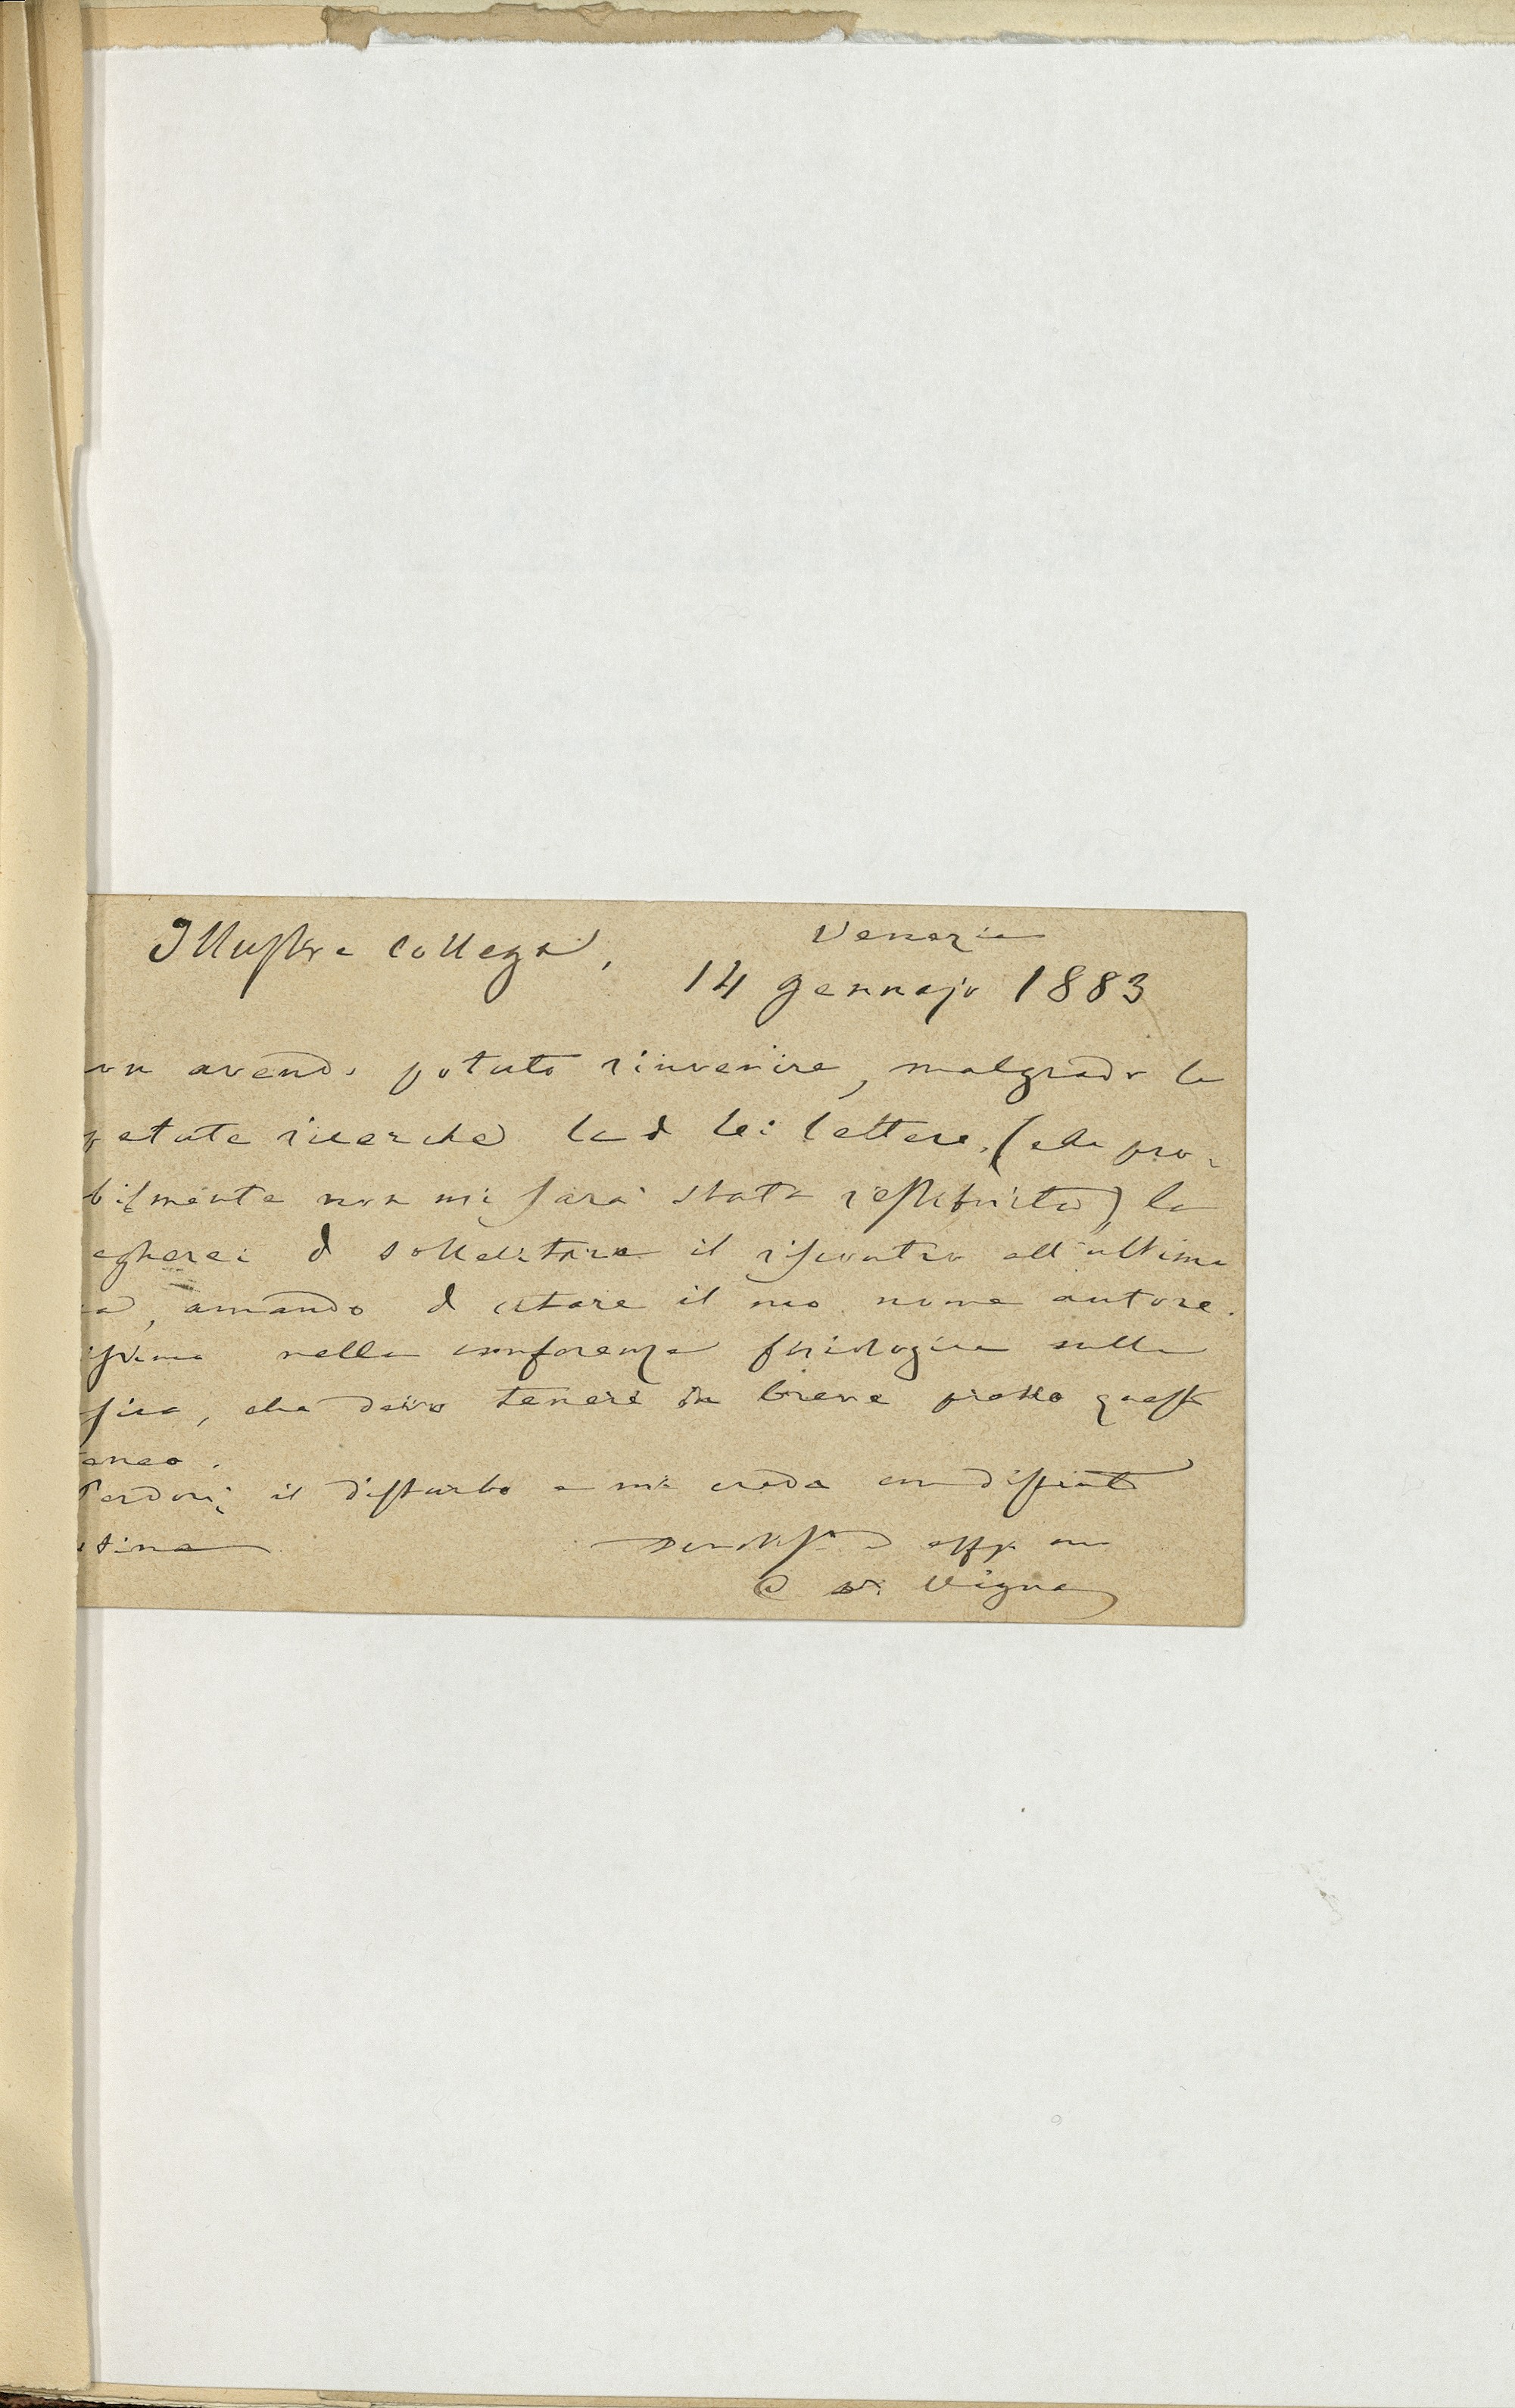 Illustre Collega,
Venezia
14 gennajo 1883
on avendo potuto rinvenire, malgrado le
petute ricerche la di lei lettera, (che pro-
bilmente non mi sarà stata restituita) la
egherei di sollecitare il riscontro all'ultima
a, amando di citare il suo nome autore.
issimo nella conferenza fisiologica sulla
sica, che devo tenere in breve presso quest
eneo.
Perdoni il disturbo e mi creda con distint
stima
C Vigna